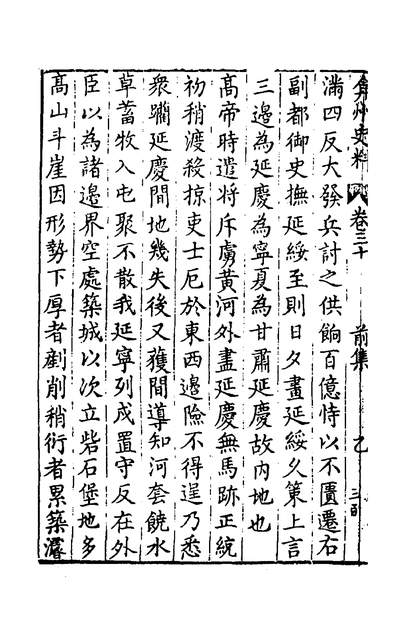 弇州史料 卷三十 前集 乙
滿四反大發兵討之供餉百億恃以不匱遷右
副都御史撫延綏至則日夕畫延綏久策上言
三邊為延慶為寧夏為甘肅延慶故內地也
高帝時遣将斥虜黃河外盡延慶無馬跡正統
初稍渡殺掠吏士厄於東西邊險不得逞乃悉
衆躪延慶間地幾失後又獲間導知河套饒水
草蓄牧入屯聚不散我延寧列戍置守反在外
臣以為諸邊界空處築城以次立砦石堡地多
高山斗崖因形勢下厚者剷削稍衍者累築濬